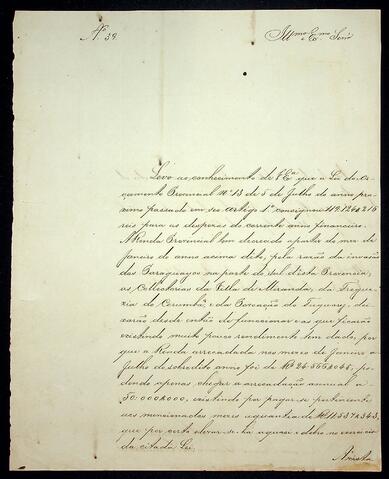 Nº 39.
Illmo. e Exmo. Senr.
Levo ao conhecimento de VExª que a Lei do Or-
çamento Provincial nº 13 de 5 de Julho do anno pro-
ximo passado em seu artigo 1º consignou
reis para as despezas do corrente anno financeiro.
A Renda Provincial tem decreado a partir do mez de
Janeiro do anno acima dito, pela razão da invasão
dos Paraguayos na parte do sul d'esta Provincia,
as Collectorias da Villa de Miranda, da Fregue-
zia de Corumbá, e da Povoação do Taquary, dei-
xarão desde então de funccionar e as que ficarão
existindo muito pouco rendimento tem dado, por
que a Renda arrecadada nos mezes de Janeiro a
Julho do sobredito anno foi de Rs 26:556$048, po-
dendo apenas chegar a arrecadação annual a
50:000$000, existindo por pagar-se pertencente
aos mencionados mezes a quantia de Rs 11:537$343,
que por certo elevar-se-ha a quasi o dobro no exercicio
da citada Lei.